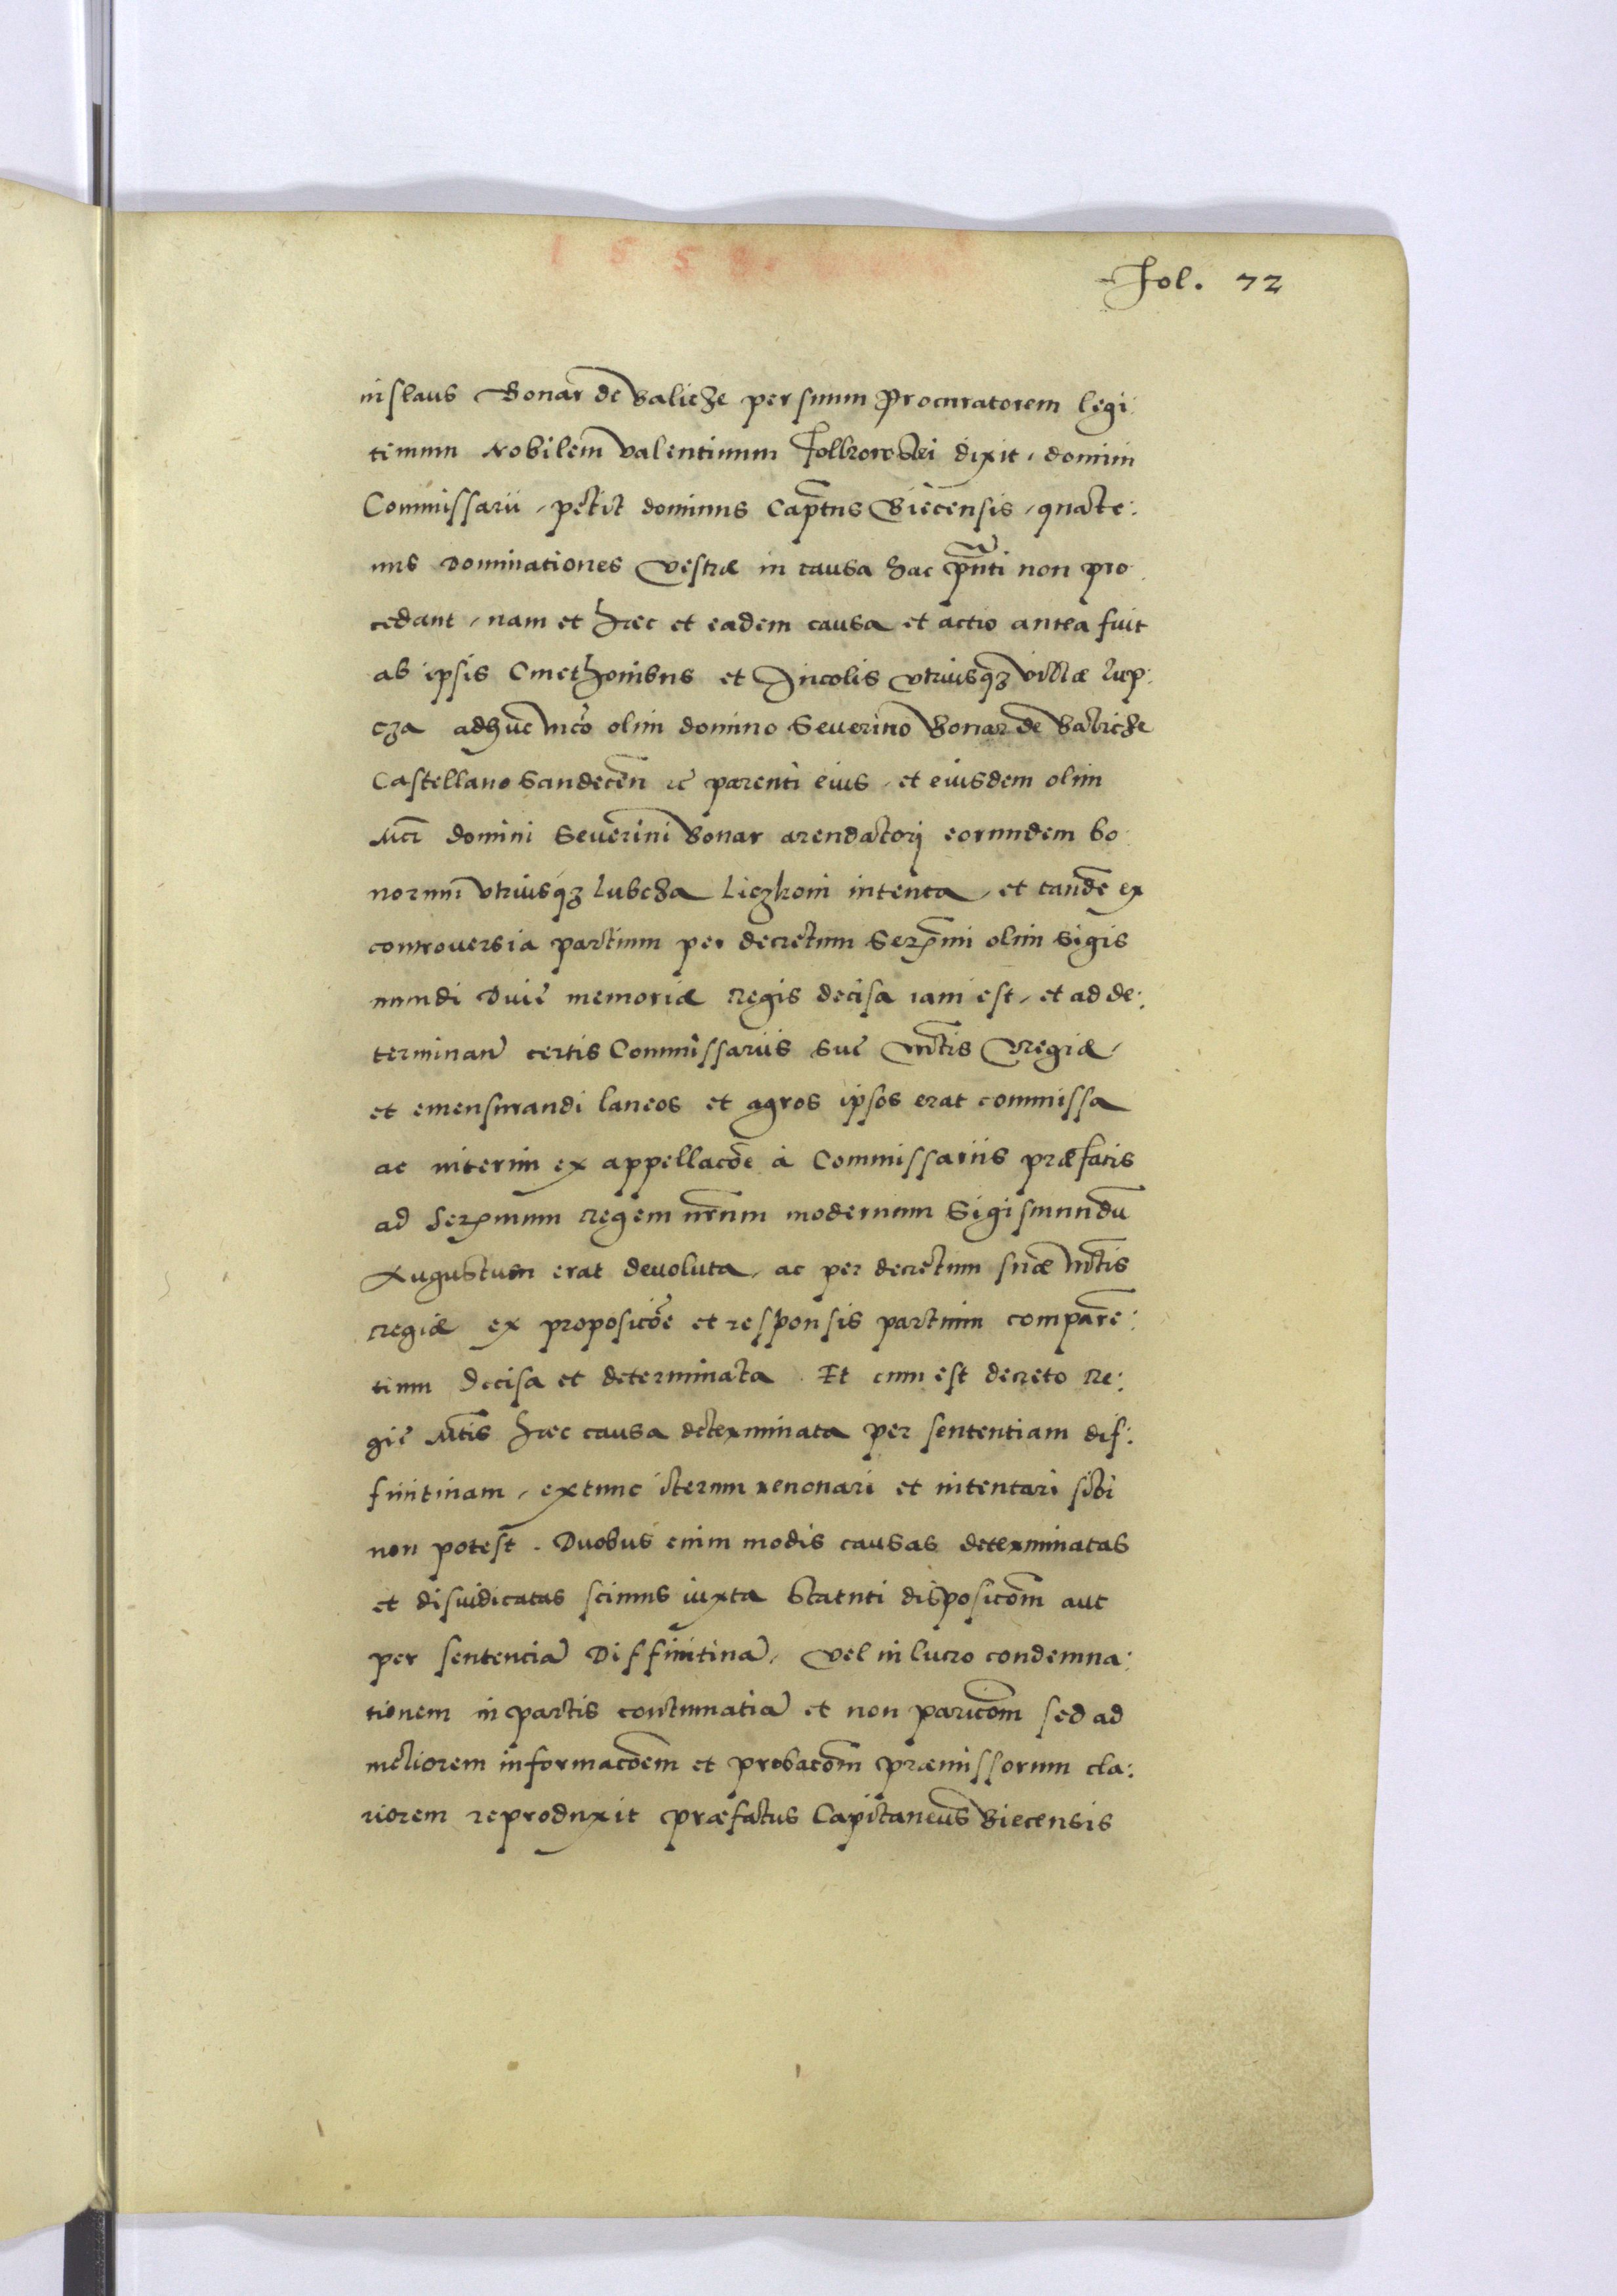 1558.
Fol. 72
nislaus Bonar de Balicze per suum Procuratorem legi:
timum Nobilem Valentinum dixit, domini
Commissarii, petit dominus Captus Biecensis, quate:
nus Dominationes Vestræ in causa hac pnti non pro
cedant, nam et hæc et eadem causa et actio antea fuit
ab ipsis Cmethonibus et Incolis vtriusqz villæ Lup:
cza adhuc mco olim domino Seuerino Bonar de Balicze
Castellano Sandecen rc parenti eius, et eiusdem olim
Mci domini Seuerini Bonar arendatorj eorundem bo
norum vtriusqz Lubcza Liczkoni intenta, et tande ex
controuersia partium per decretum Sermi olim Sigis
mundi Diuę memoriæ Regis decisa iam est, et ad de:
terminan certis Commissariis Suę Mtis Regiæ,
et emensurandi laneos et agros ipsos erat commissa
ac interim ex appellacoe à Commissariis præfatis
ad Sermum Regem nrum modernum Sigismundu
Augustum erat deuoluta, ac per decretum suæ Mtis
Regiæ ex proposicoe et responsis partium compare:
tium decisa et determinata. Et cum est decreto Re:
gię Mtis hæc causa determinata per sententiam dif:
finitiuam, extunc iterum renouari et intentari sibi
non potest. Duobus enim modis causas determinatas
et disiudicatas scimus iuxta Statuti disposicom aut
per sentencia Diffinitiua, vel in lucro condemna:
tionem in partis contumatia et non paricom sed ad
meliorem informacoem et probacom præmissorum cla:
riorem reproduxit præfatus Capitaneus Biecensis